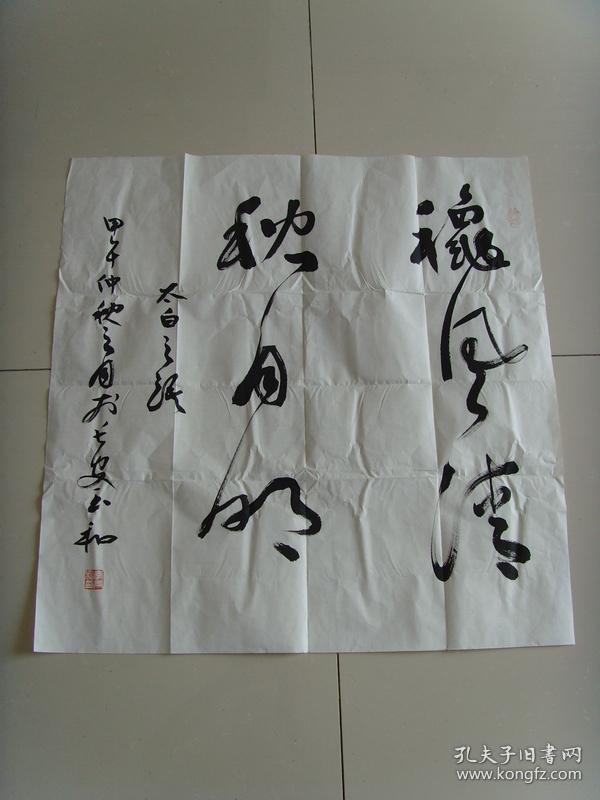 龝風清
秋月明
太白之
甲午仲秋之月於長安
孔夫子旧書网
www.kongfz.com